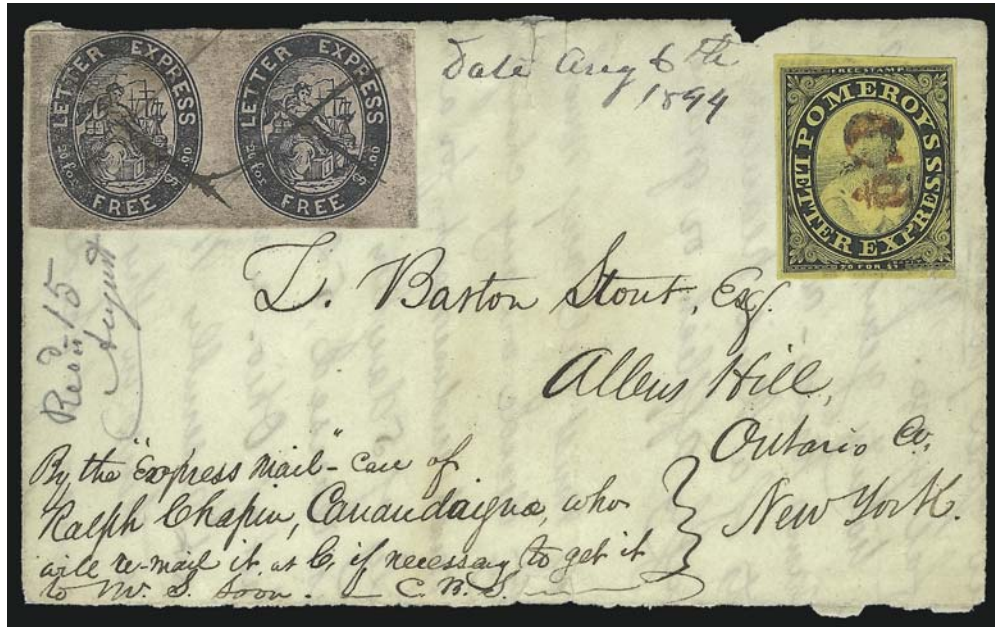 LETTER EXPRESS
20 for $1.00
FREE
LETTER EXPRESS
20 for $1.00
FREE
Date Aug 6th
1844
FREE STAMP
POMEROY'S
LETTER EXPRESS
20 FOR $1
Paid
L. Barton Stout, Esq.
Allens Hill,
Ontario Co,
New York.
Recd 15
August
By the "Express Mail" - care of
Ralph Chapin, Canandaigua, who
will re-mail it at C, if necessary to get it
to Mr. S. soon. - C. B. S.